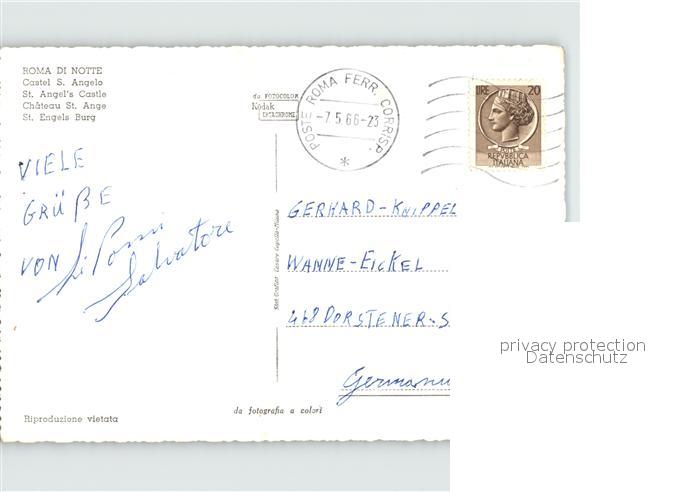 ROMA DI NOTTE
Castel S. Angelo
St. Angel's Castle
Château St. Ange
St. Engels Burg
da FOTOCOLOR
Kodak
EKTACHROME
POSTE ROMA FERR. CORRISP.
-7.5.66-23
*
LIRE 20
POSTE
REPVBBLICA
ITALIANA
VIELE
GRÜßE
VON
Salvatore
GERHARD-KNIPPEL
WANNE-EICKEL
468 DORSTENER-S
Riproduzione vietata
da fotografia a colori
privacy protection
Datenschutz